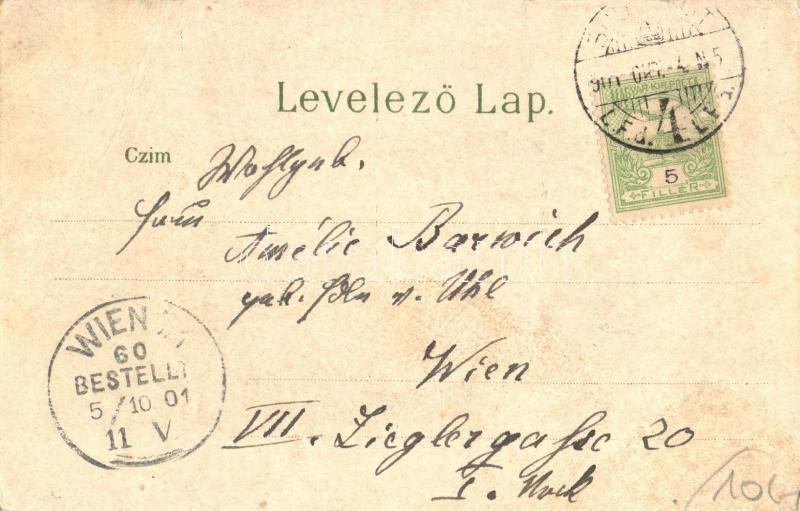 Levelező Lap.
Czim
Wohlgeb.
Frau
Amélie Barwich
geb. Edle v. Uhl
Wien
VII. Zieglergasse 20
I. Stock
MAGYAR KIR. POSTA
5
FILLÉR
901 OKT. 4. N 5
4
WIEN
60
BESTELLT
5/10 01
11 V